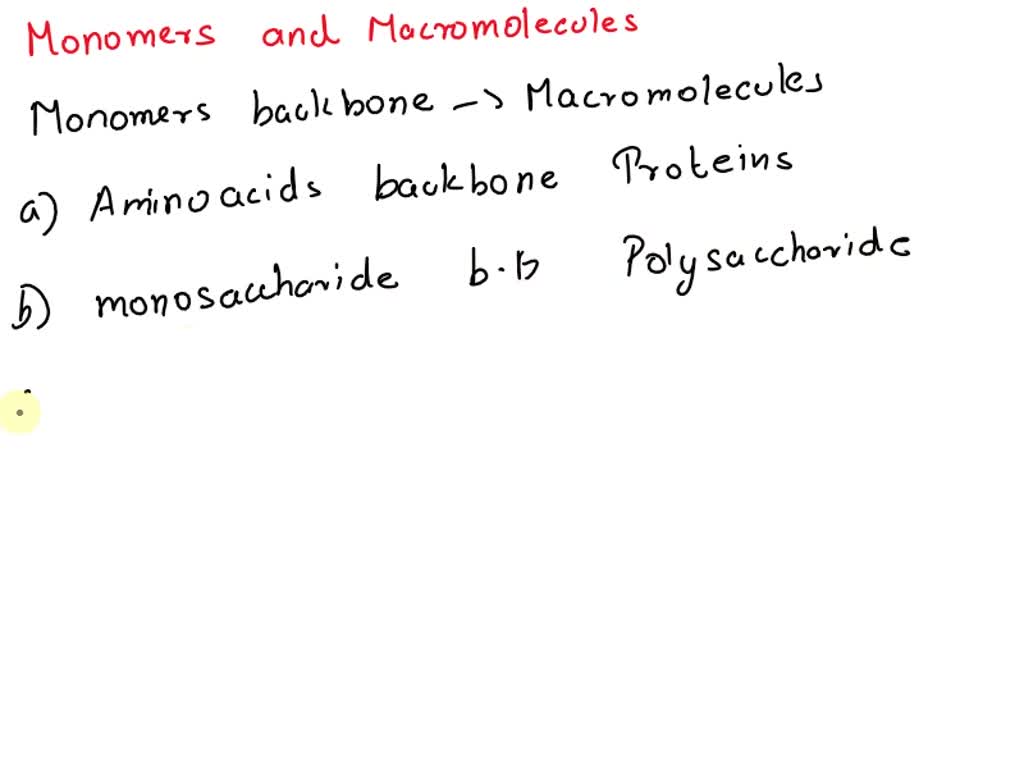 Monomers and Macromolecules
Monomers backbone -> Macromolecules
a) Aminoacids backbone Proteins
b) monosaccharide b.b Polysaccharide